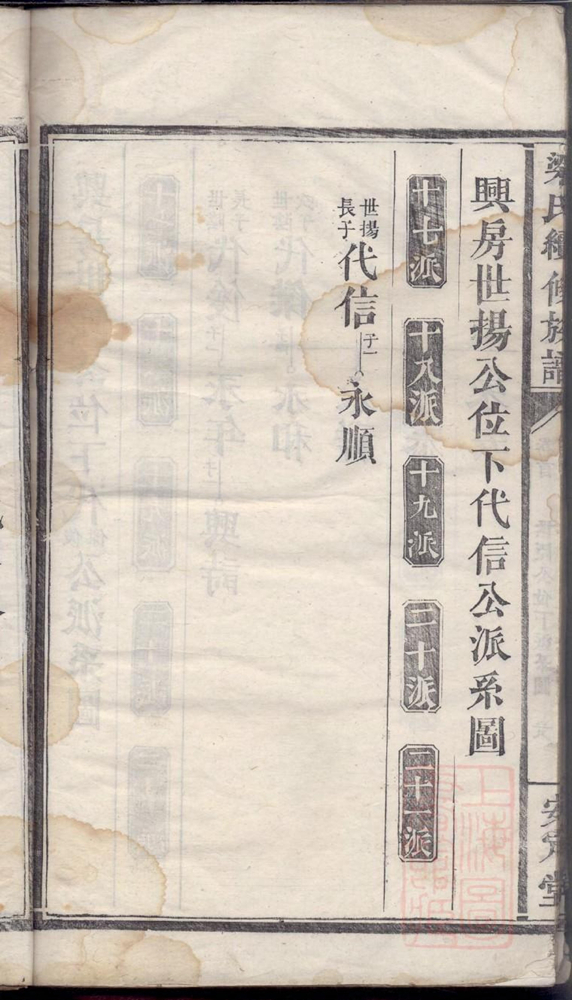 興房世揚公位下代信公派系圖
十七派 十八派 十九派 二十派 二十一派
世揚長子 代信 子一 永順
氏 族譜
安定堂
上海圖